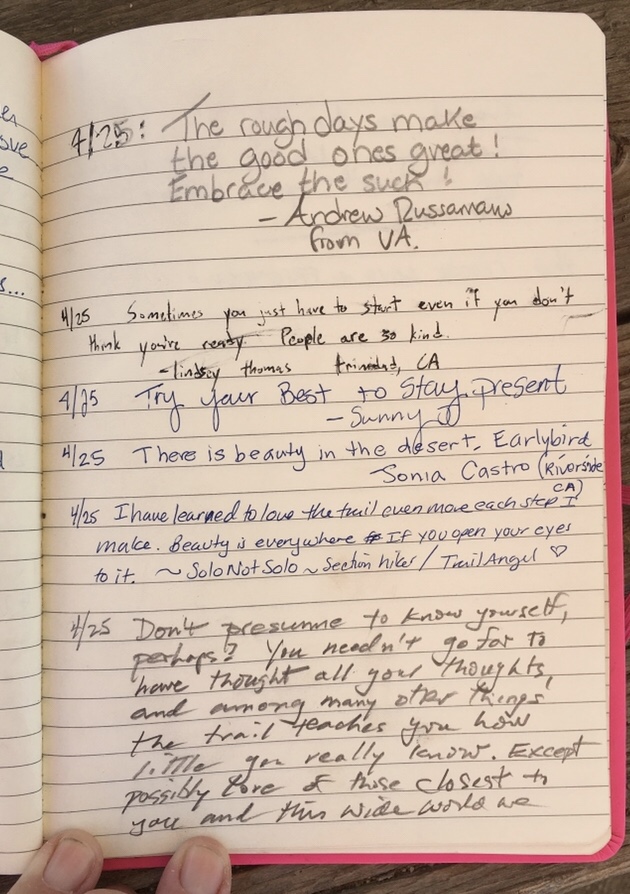 4/25: The rough days make
the good ones great!
Embrace the suck!
- Andrew
from VA.
4/25 Sometimes you just have to start even if you don't
think you're ready. People are so kind.
-lindsey thomas trinidad, CA
4/25 Try your Best to Stay present
- Sunny D
4/25 There is beauty in the desert. Earlybird
Sonia Castro (Riverside
CA)
4/25 I have learned to love the trail even more each step I
make. Beauty is everywhere If you open your eyes
to it. ~ SoloNotSolo ~ Section hiker / Trail Angel ♡
4/25 Don't presume to know yourself,
perhaps? You needn't go far to
have thought all your thoughts,
and among many other things
the trail teaches you how
little you really know. Except
possibly love of those closest to
you and this wide world we